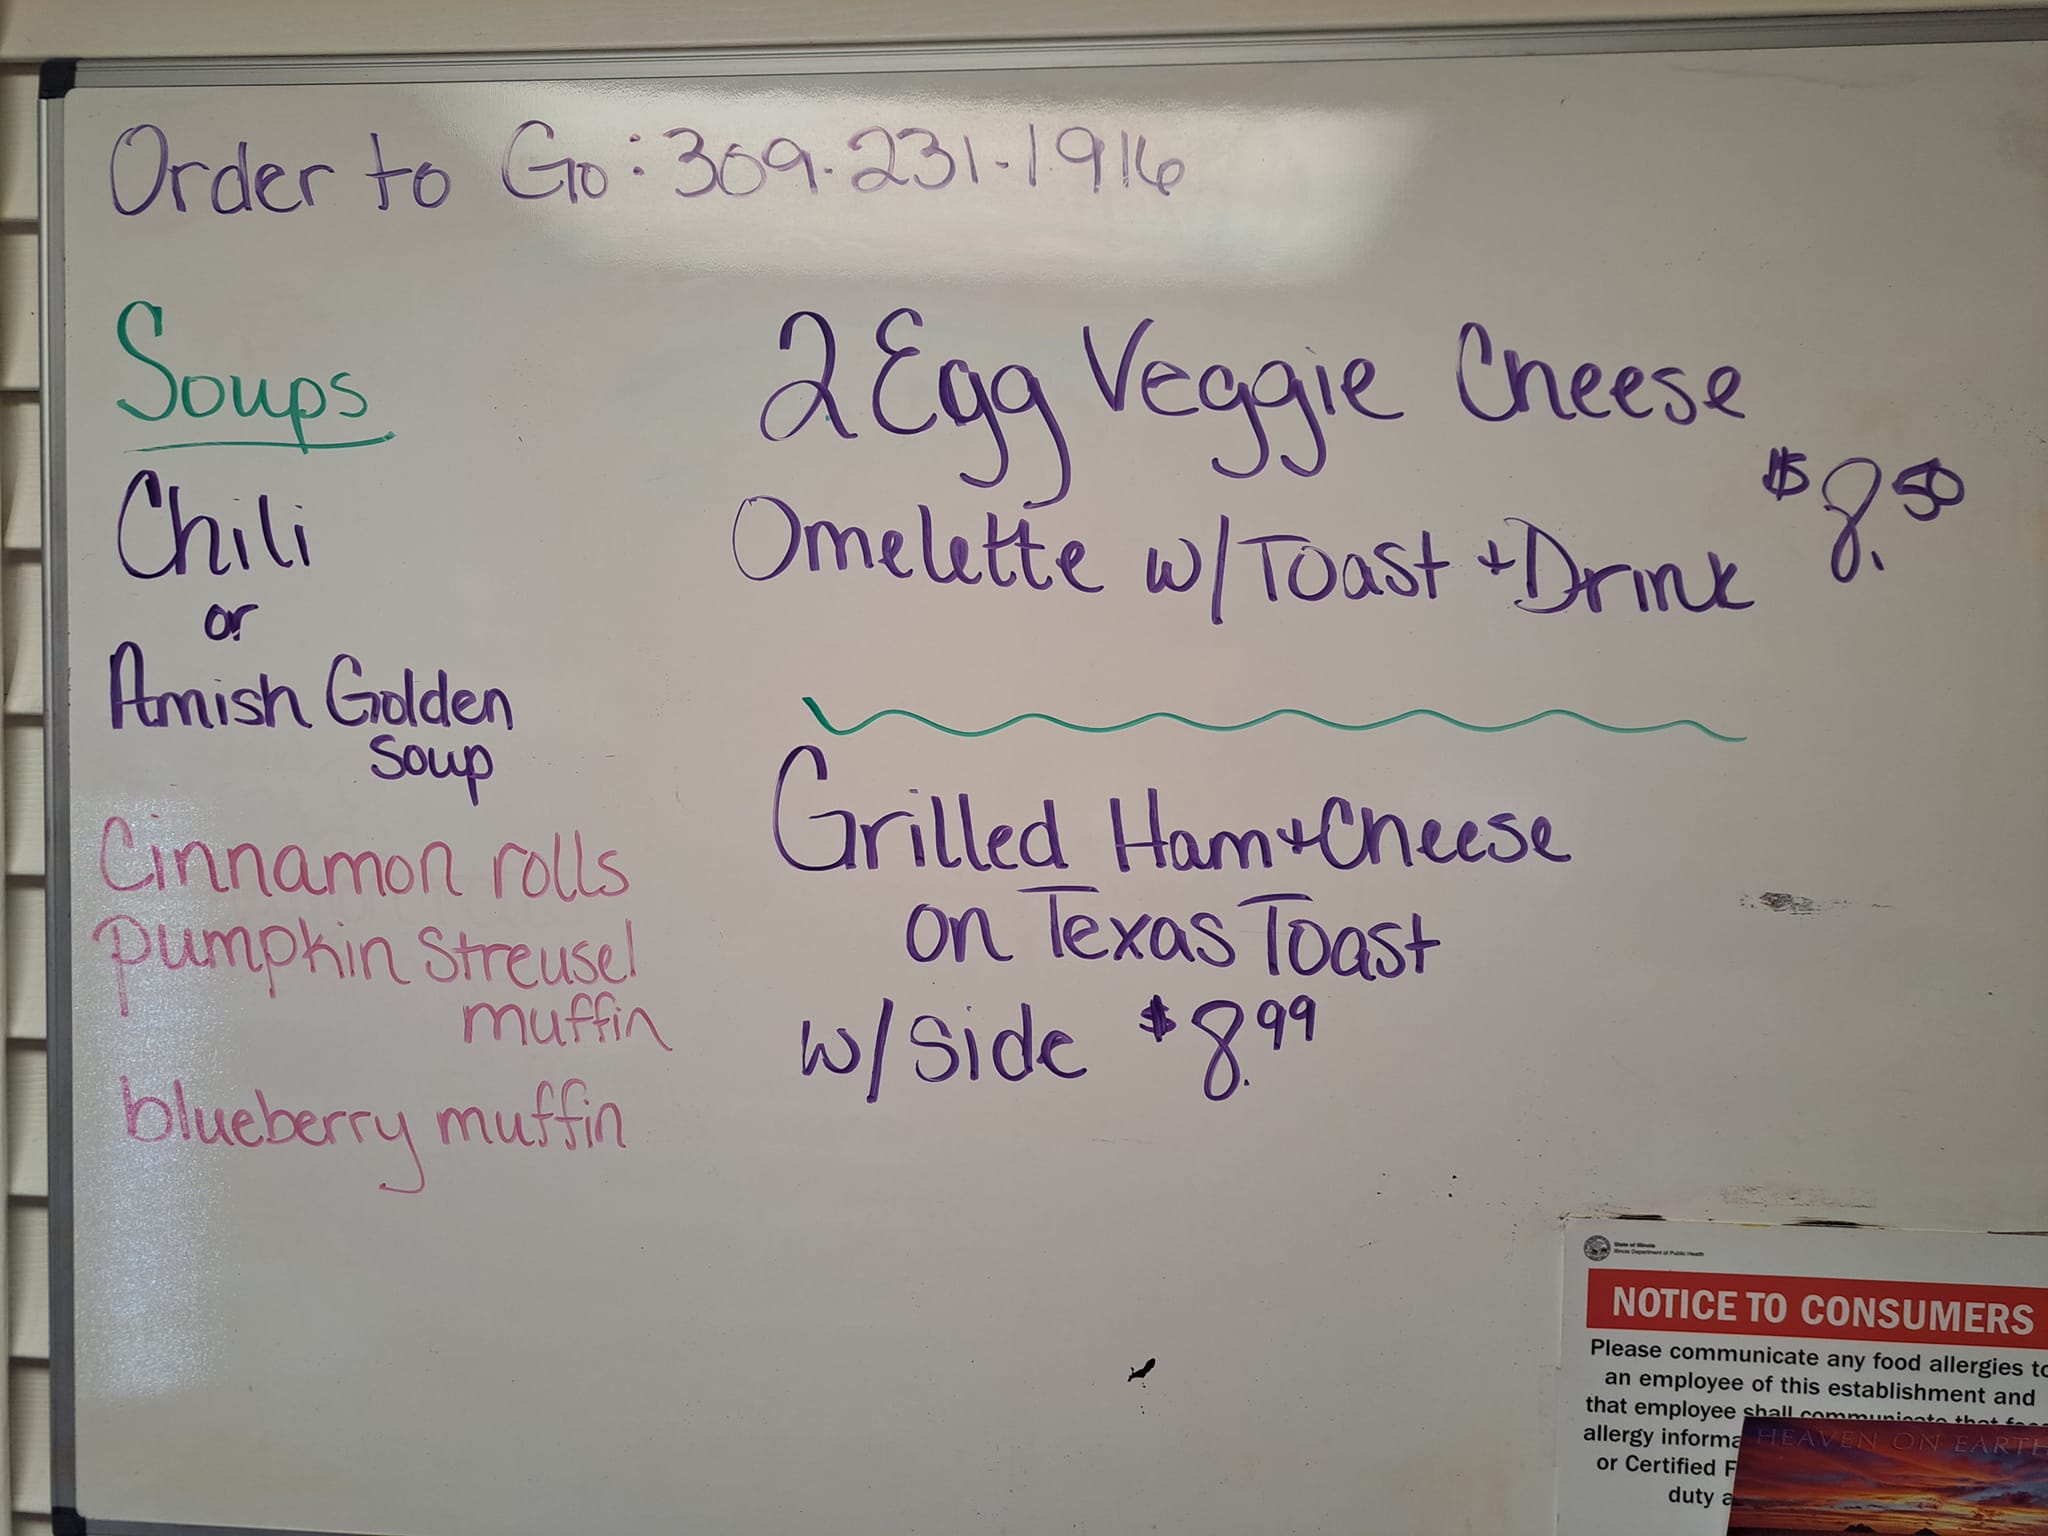 Order to Go: 309-231-1916
Soups
Chili
or
Amish Golden
Soup
Cinnamon rolls
Pumpkin Streusel
muffin
blueberry muffin
2 Egg Veggie Cheese
Omelette w/Toast + Drink $8.50
Grilled Ham + Cheese
on Texas Toast
w/Side $8.99
State of Illinois
Illinois Department of Public Health
NOTICE TO CONSUMERS
Please communicate any food allergies to
an employee of this establishment and
that employee shall communicate that
allergy
or Certified
duty
HEAVEN ON EARTH